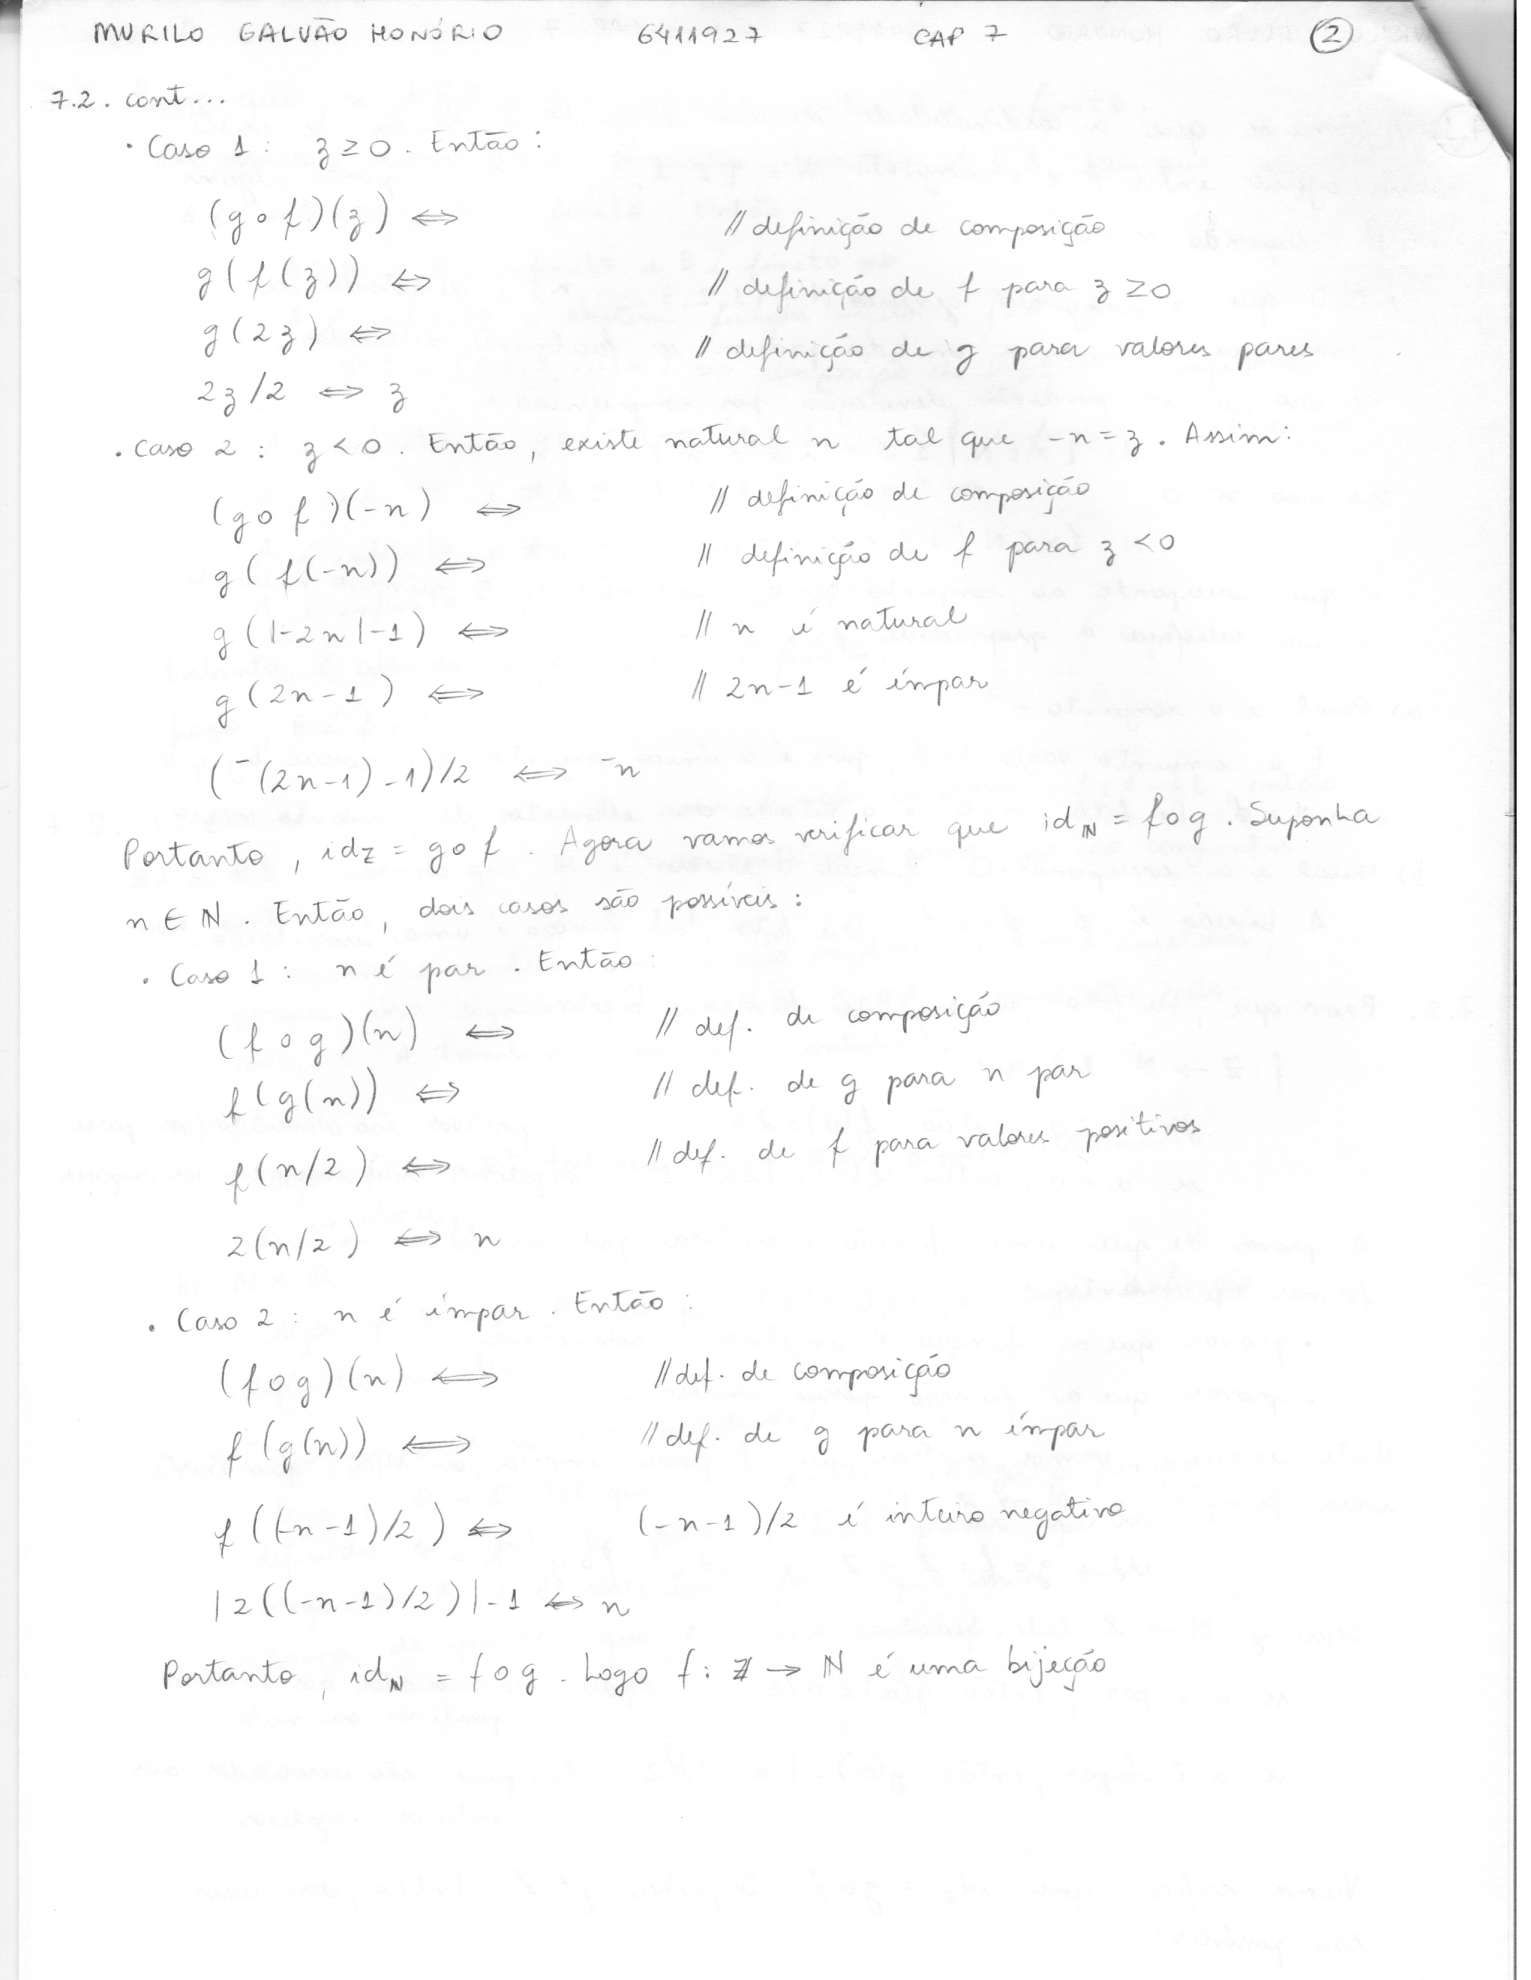 MURILO GALVÃO HONÓRIO 6411927 CAP 7 2
7.2. cont...
· Caso 1 : z ≥ 0 . Então :
(g o f)(z) ⇔ // definição de composição
g(f(z)) ⇔ // definição de f para z ≥ 0
g(2z) ⇔ // definição de g para valores pares
2z/2 ⇔ z
· Caso 2 : z < 0 . Então, existe natural n tal que -n = z . Assim:
(g o f)(-n) ⇔ // definição de composição
g(f(-n)) ⇔ // definição de f para z < 0
g(|-2n|-1) ⇔ // n é natural
g(2n-1) ⇔ // 2n-1 é ímpar
(-(2n-1)-1)/2 ⇔ -n
Portanto, idℤ = g o f . Agora vamos verificar que idℕ = f o g . Suponha
n ∈ ℕ . Então, dois casos são possíveis :
· Caso 1 : n é par . Então :
(f o g)(n) ⇔ // def. de composição
f(g(n)) ⇔ // def. de g para n par
f(n/2) ⇔ // def. de f para valores positivos
2(n/2) ⇔ n
· Caso 2 : n é ímpar . Então :
(f o g)(n) ⇔ // def. de composição
f(g(n)) ⇔ // def. de g para n ímpar
f((-n-1)/2) ⇔ (-n-1)/2 é inteiro negativo
|2((-n-1)/2)|-1 ⇔ n
Portanto, idℕ = f o g . Logo f : ℤ → ℕ é uma bijeção